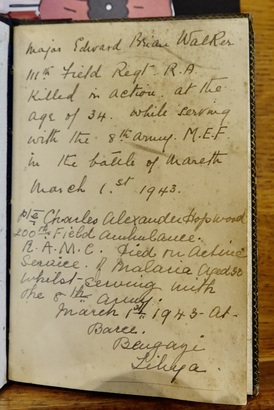 Major Edward Brian Walker
111th Field Regt R.A.
Killed in action at the
age of 34. while serving
with the 8th army. M.E.F
in the battle of Mareth
March 1.st 1943.
Pte Charles Alexander Hopwood
200th Field Ambulance.
R.A.M.C. Died on Active
Service. of Malaria Aged 30
whilst serving with
the 8th Army.
March 1st 1943 - At -
Barce.
Bengazi
Libya.